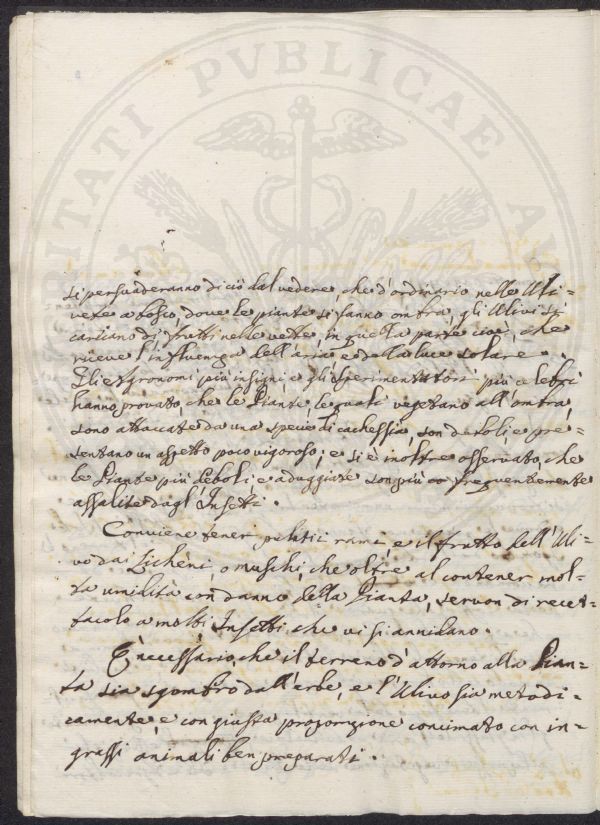 PVBLICAE
si persuaderanno di ciò dal vedere, che d'ordinario nelle Uli-
vete a bosco, dove le piante si fanno ombra, gli Ulivi si
caricano di frutti nelle vette, in quella parte cioè, che
riceve l'influenza dell'aria e della luce solare.
Gli Agronomi più insigni, e gli Sperimentatori più celebri
hanno provato, che le Piante, le quali vegetano all'ombra,
sono attaccate da una specie di cachessia, son deboli, e pre-
sentano un aspetto poco vigoroso; e si è inoltre osservato, che
le Piante più deboli, e aduggiate son più frequentemente
assalite dagl'Insetti.
Conviene tener puliti i rami, e il frutto dell'Uli-
vo dai Licheni, o muschi, che oltre al contener mol-
ta umidità con danno della Pianta, servon di recet-
tacolo a molti Insetti che vi si annidano.
È necessario, che il terreno d'attorno alla Pian-
ta sia sgombro dall'erbe, e l'Ulivo sia metodi-
camente, e con giusta proporzione concimato con in-
grassi animali ben preparati.